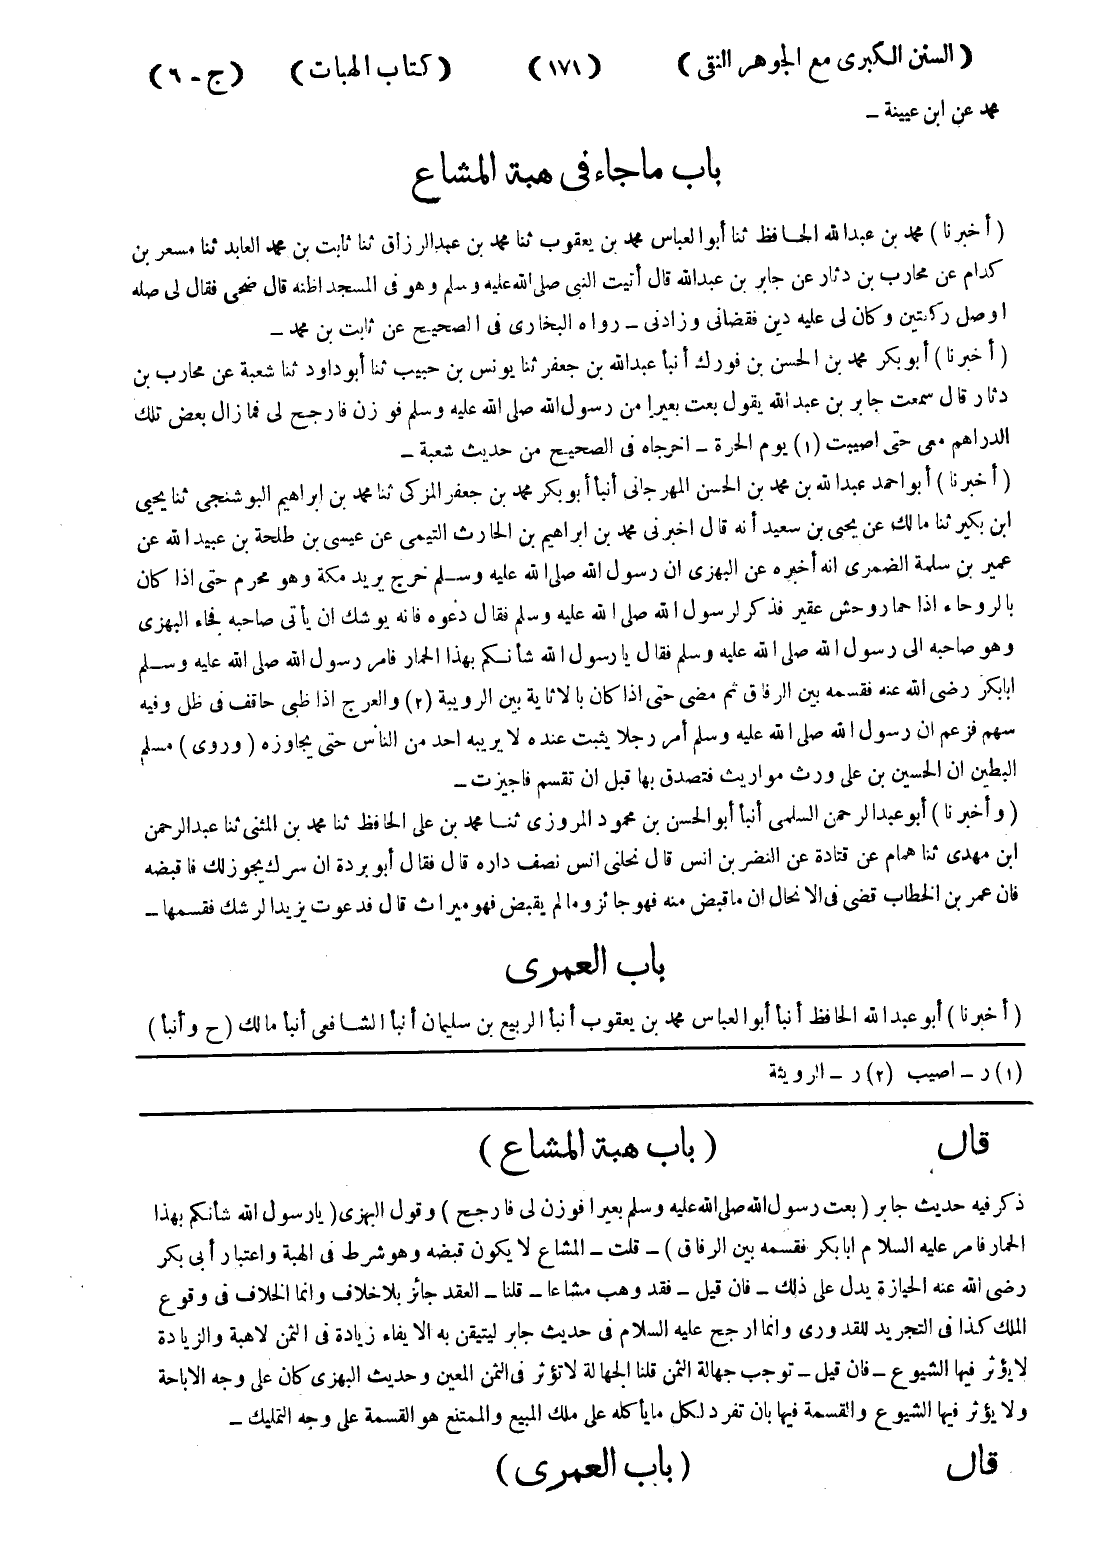 ( السنن الكبرى مع الجوهر النقى ) (١٧١) ( كتاب الهبات ) (ج - ٦)
محمد عن ابن عيينة ـ
باب ماجاء فى هبة المشاع
( أخبرنا ) محمد بن عبدالله الحافظ ثنا أبوالعباس محمد بن يعقوب ثنا محمد بن عبدالرزاق ثنا ثابت بن محمد العابد ثنا مسعر بن
كدام عن محارب بن دثار عن جابر بن عبدالله قال أتيت النبى صلى الله عليه وسلم وهو فى المسجد اظنه قال ضحى فقال لى صله
اوصل ركعتين وكان لى عليه دين فقضانى وزادنى ـ رواه البخارى فى الصحيح عن ثابت بن محمد ـ
( أخبرنا ) أبوبكر محمد بن الحسن بن فورك أنبأ عبدالله بن جعفر ثنا يونس بن حبيب ثنا أبوداود ثنا شعبة عن محارب بن
دثار قال سمعت جابر بن عبدالله يقول بعت بعيرا من رسول الله صلى الله عليه وسلم فوزن فارجح لى فمازال بعض تلك
الدراهم معى حتى اصيبت (١) يوم الحرة ـ اخرجاه فى الصحيح من حديث شعبة ـ
( أخبرنا ) أبواحمد عبدالله بن محمد بن الحسن المهرجانى أنبأ أبوبكر محمد بن جعفر المزكى ثنا محمد بن ابراهيم البوشنجى ثنا يحيى
ابن بكير ثنا مالك عن يحيى بن سعيد أنه قال اخبرنى محمد بن ابراهيم بن الحارث التيمى عن عيسى بن طلحة بن عبيدالله عن
عمير بن سلمة الضمرى انه أخبره عن البهزى ان رسول الله صلى الله عليه وسلم خرج يريد مكة وهو محرم حتى اذا كان
بالروحاء اذا حمار وحش عقير فذكر لرسول الله صلى الله عليه وسلم فقال دعوه فانه يوشك ان يأتى صاحبه فجاء البهزى
وهو صاحبه الى رسول الله صلى الله عليه وسلم فقال يارسول الله شأنكم بهذا الحمار فامر رسول الله صلى الله عليه وسلم
ابابكر رضى الله عنه فقسمه بين الرفاق ثم مضى حتى اذا كان بالاثاية بين الرويبة (٢) والعرج اذا ظبى حاقف فى ظل وفيه
سهم فزعم ان رسول الله صلى الله عليه وسلم أمر رجلا يثبت عنده لا يريبه احد من الناس حتى يجاوزه ( وروى ) مسلم
البطين ان الحسين بن على ورث مواريث فتصدق بها قبل ان تقسم فاجيزت ـ
( وأخبرنا ) أبوعبدالرحمن السلمى أنبأ أبوالحسن بن محمود المروزى ثنا محمد بن على الحافظ ثنا محمد بن المثنى ثنا عبدالرحمن
ابن مهدى ثنا همام عن قتادة عن النضر بن انس قال نحلنى انس نصف داره قال فقال أبو بردة ان سرك يجوز لك فاقبضه
فان عمر بن الخطاب قضى فى الانحال ان ماقبض منه فهو جائز ومالم يقبض فهو ميراث قال فدعوت يزيد الرشك فقسمها ـ
باب العمرى
( أخبرنا ) أبوعبدالله الحافظ أنبأ أبوالعباس محمد بن يعقوب أنبأ الربيع بن سليمان أنبأ الشافعى أنبأ مالك ( ح وأنبأ )
(١) ر ـ اصيب (٢) ر ـ الرويثة
قال ( باب هبة المشاع )
ذكر فيه حديث جابر ( بعت رسول الله صلى الله عليه وسلم بعيرا فوزن لى فارجح ) وقول البهزى ( يارسول الله شأنكم بهذا
الحمار فامر عليه السلام ابابكر فقسمه بين الرفاق ) ـ قلت ـ المشاع لا يكون قبضه وهو شرط فى الهبة واعتبار أبى بكر
رضى الله عنه الحيازة يدل على ذلك ـ فان قيل ـ فقد وهب مشاعا ـ قلنا ـ العقد جائز بلاخلاف وانما الخلاف فى وقوع
الملك كذا فى التجريد للقدورى وانما ارجح عليه السلام فى حديث جابر ليتيقن به الايفاء زيادة فى الثمن لاهبة والزيادة
لايؤثر فيها الشيوع ـ فان قيل ـ توجب جهالة الثمن قلنا الجهالة لاتؤثر فى الثمن المعين وحديث البهزى كان على وجه الاباحة
ولا يؤثر فيها الشيوع والقسمة فيها بان تفرد لكل مايأكله على ملك المبيح والممتنع هو القسمة على وجه التمليك ـ
قال ( باب العمرى )